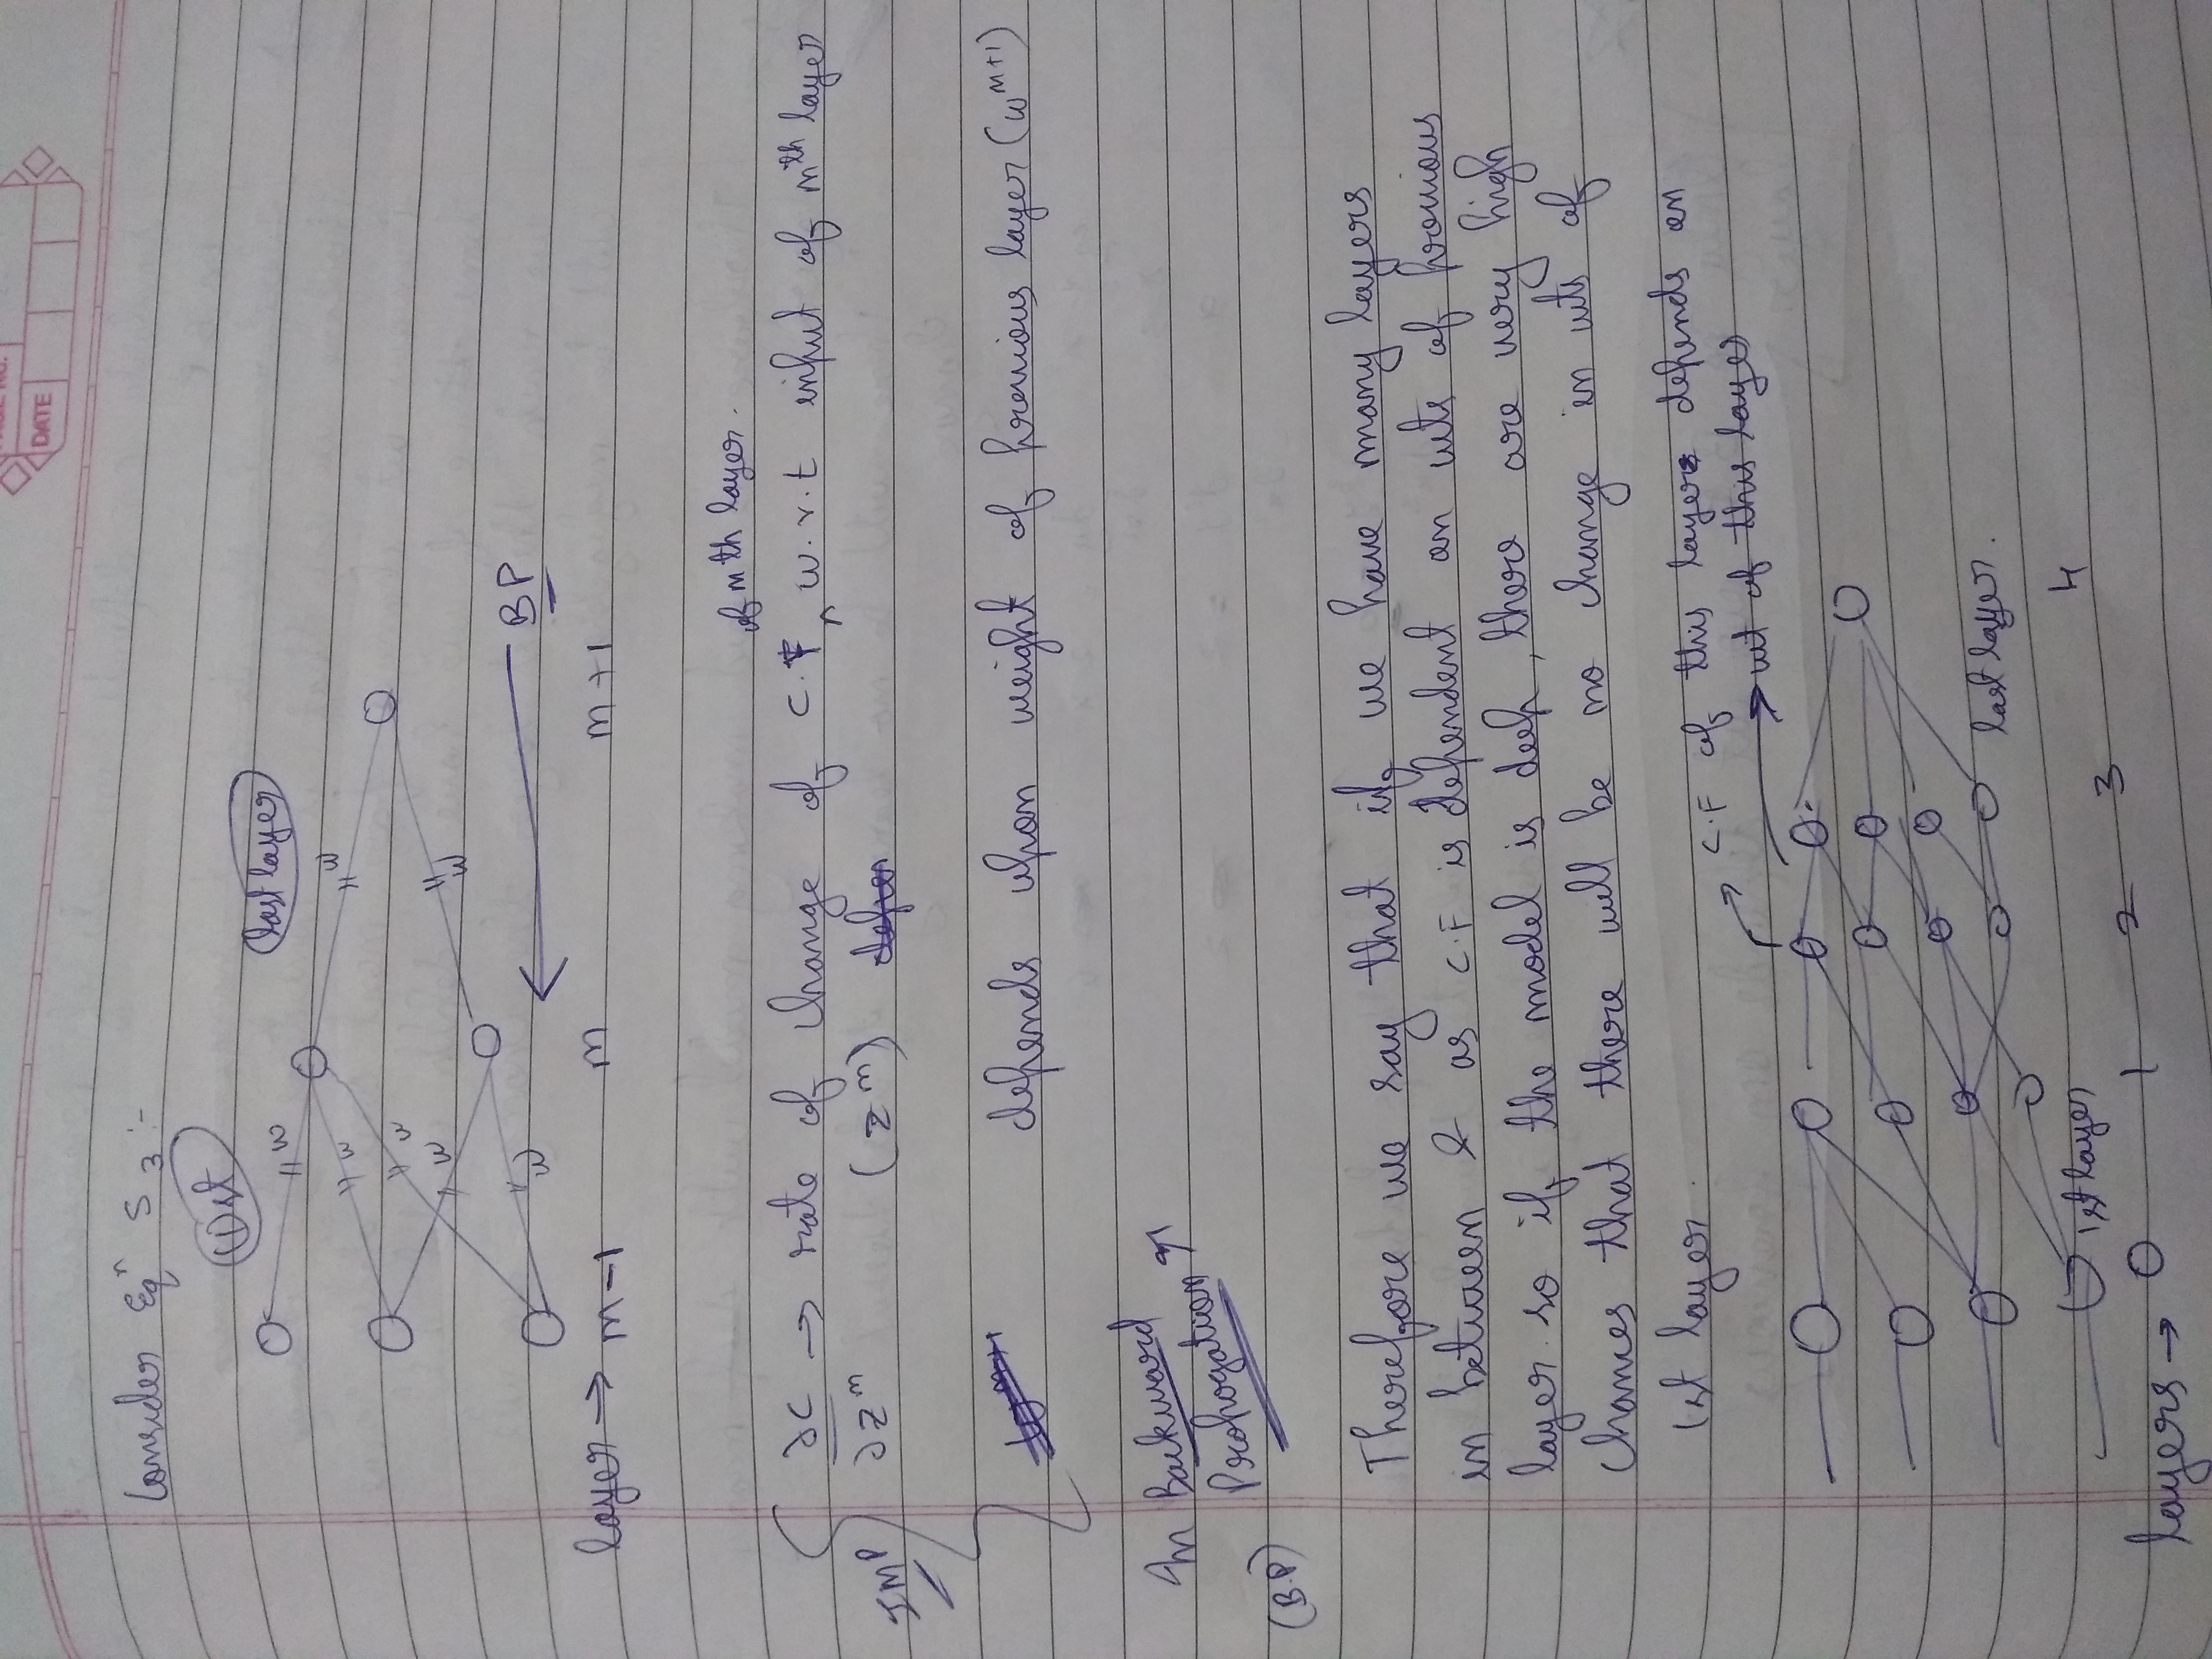 PAGE NO.
DATE
Consider Eqⁿ S 3 :-
1st
last layer
w
w
w
w
w
w
w
BP
layer → m-1 m m+1
of mth layer.
∂C/∂zᵐ → rate of change of C.F ^ w.r.t input of mth layer
(zᵐ)
IMP
depends upon weight of previous layer (wᵐ⁺¹)
In Backward
Propogation
(B.P)
Therefore we say that if we have many layers
in between & as C.F is dependent on wts of previous
layer so if the model is deep, there are very high
chances that there will be no change in wts of
1st layer.
C.F of this layer depends on
wt of this layer
last layer.
1st layer
layers → 0 1 2 3 4